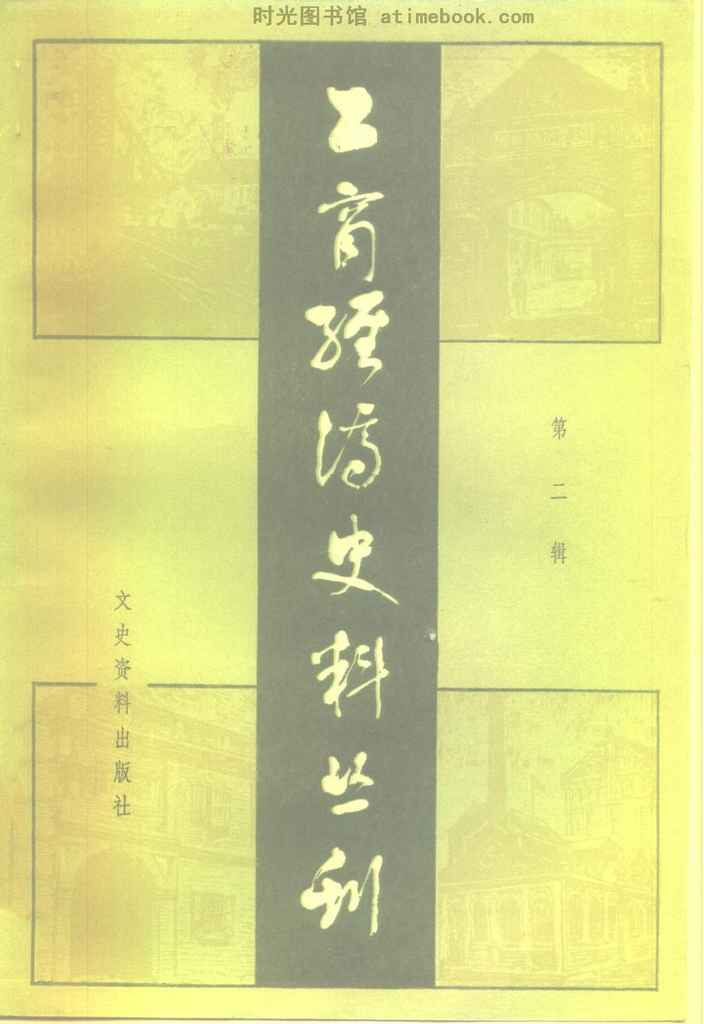 时光图书馆 atimebook.com
工商经济史料丛刊
第二辑
文史资料出版社